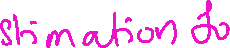 stimation to